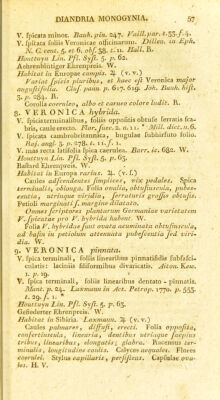 DIANDRIA MONOGYNIA. 57
V. spicata minor. Bauh. pin. 247. Vaill. par. t. 33. f. 4.
V. spicata foliis Veronicae officinarum. Dillen. in Eph.
N. C. cent. 5. et 6. obs. 58. t. 11. Hall. R.
Houttuyn Lin. Pfl. Syst. 5. p. 62.
Aehrenblütiger Ehrenpreis. W.
Habitat in Europae campis. ♃ (v. v.)
Variat spicis pluribus, et haec est Veronica major
angustifolia. Clus. pann. p. 617. 619. Joh. Bauh. hist.
3. p. 284. R.
Corolla coeruleo, albo et carneo colore ludit. R.
8. VERONICA hybrida.
V. spicis terminalibus, foliis oppositis obtuse serratis sca-
bris, caule erecto. Flor. suec. 2. n. 11. * Mill. dict. n. 6.
V. spicata cambrobritannica, bugulae subhirsuto folio.
Raj. angl. 3. p. 278. t. 11. f. 1.
V. mas recta latifolia spica caerulea. Barr. ic. 682. W.
Houttuyn Lin. Pfl. Syst. 5. p. 63.
Bastard Ehrenpreis. W.
Habitat in Europa rarius. ♃ (v. f.)
Caules adscendentes simplices, vix pedales. Spica
terminalis, oblonga. Folia ovalia, obtusiuscula, pubes-
centia, utrinque viridia, serraturis grossis obtusis.
Petioli marginati s. margine dilatato.
Omnes scriptores plantarum Germaniae varietatem
V. spicatae pro V. hybrida habent. W.
Folia V. hybridae sunt ovata acuminata obtusiuscula,
ad basin in petiolum attenuata pubescentia sed viri-
dia. W.
9. VERONICA pinnata.
V. spica terminali, foliis linearibus pinnatifidis subfasci-
culatis: laciniis filiformibus divaricatis. Aiton. Kew.
1. p. 19.
V. spica terminali, foliis linearibus dentato - pinnatis.
Mant. p. 24. Laxmann in Act. Petrop. 1770. p. 553.
t. 29. f. 1. *
Houttuyn Lin. Pfl. Syst. 5. p. 65.
Gefiederter Ehrenpreis. W.
Habitat in Sibiria. Laxmann. ♃ (v. v.)
Caules palmares, diffusi, erecti. Folia opposita,
confertiuscula, linearia, dentibus utrinque saepius
tribus, linearibus, elongatis; glabra. Racemus ter-
minalis, longitudine caulis. Calyces aequales. Flores
caerulei. Stylus capillaris, persistens. Capsulae ova-
les. H. V.